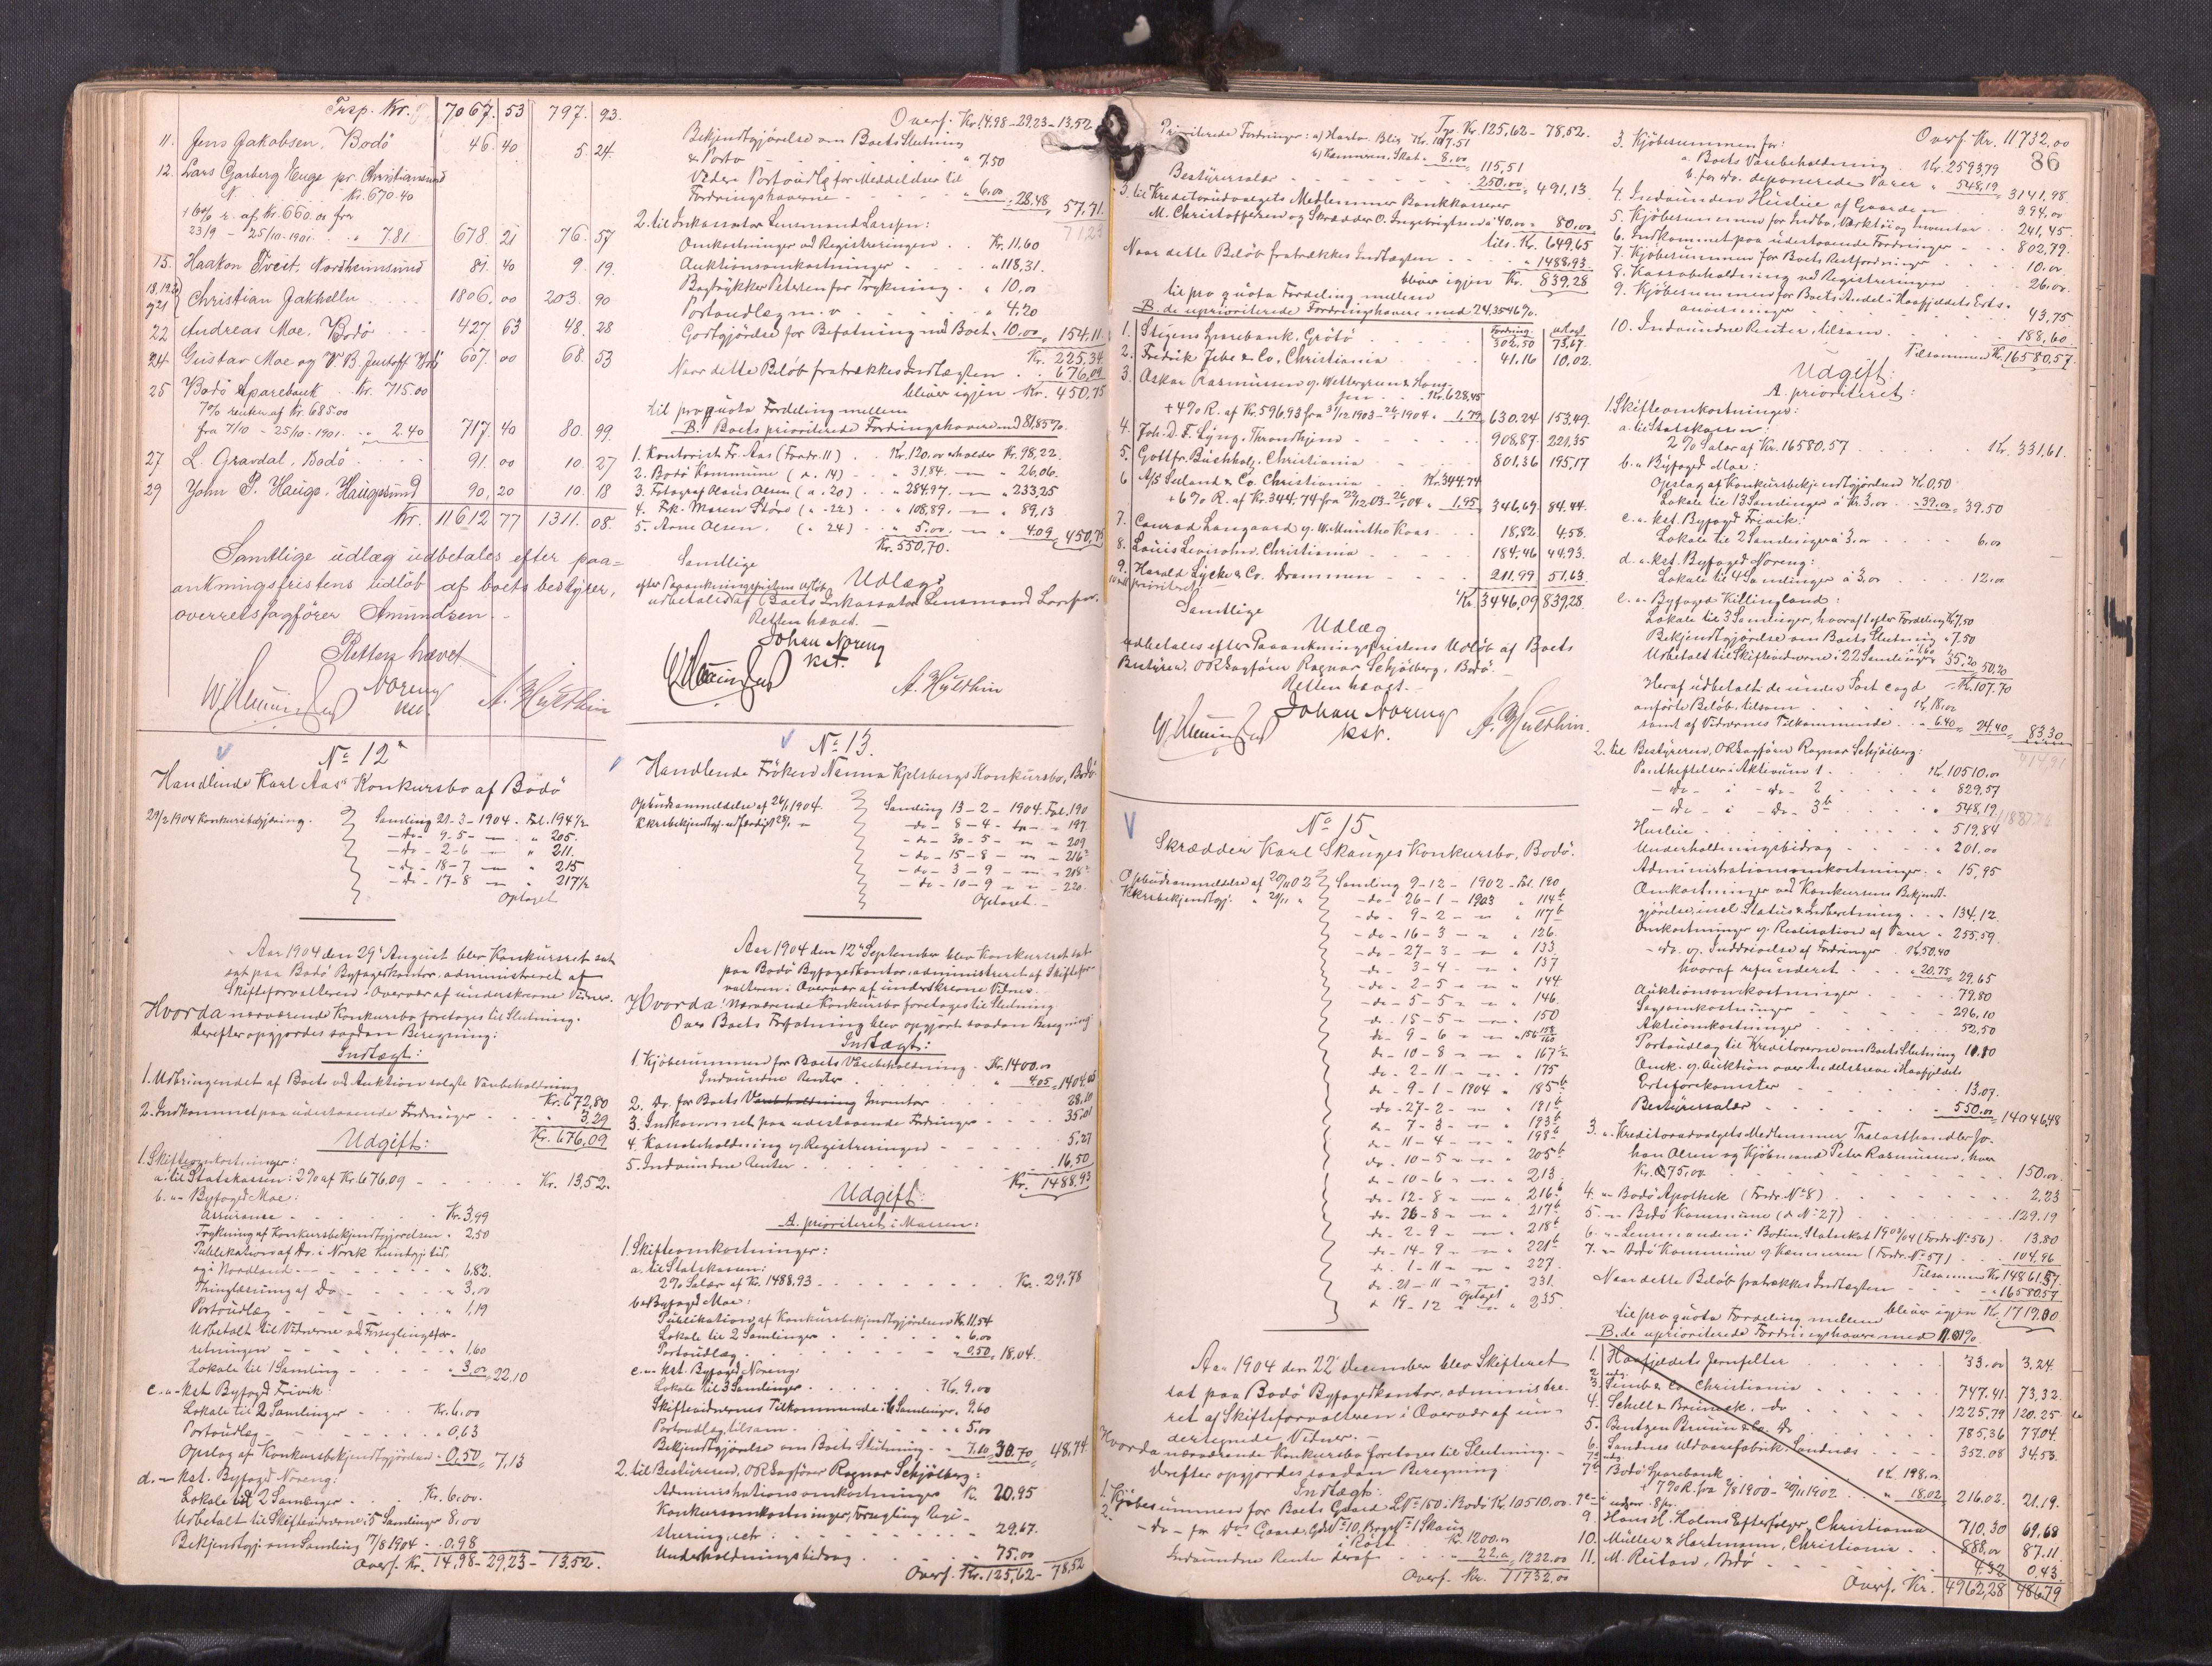 Trsp. Kr. 7067.53 797.93.
11. Jens Jakobsen, Bodö 46.40 5.24.
12. Lars Garberg Enge pr. Christiansund
N. Kr. 670.40
+ 6% r. af Kr. 660.00 fra
23/9 - 25/10-1901. " 7.81 678.21 76.57
15. Haakon Tveit, Nordheimsund 81.40 9.19.
18,19,20 og 21 Christian Jakhelln 1806.00 203.90
22 Andreas Moe, Bodö 427.63 48.28
24 Gustav Moe og V. B. Bodö 607.00 68.53
25 Bodö Sparebank Kr. 715.00
7% renter af Kr. 685.00
fra 7/10 - 25/10-1901. " 2.40 717.40 80.99
27 L. Gravdal, Bodö 91.00 10.27
29 John P. Hauge, Haugesund 90.20 10.18
Kr. 11612.77 1311.08.
Samtlige udlæg udbetales efter paa=
ankningsfristens udlöb af boets bestyrer,
overretssagförer Amundsen.
Retten hævet
Noreng
kst.
A. Hulthin
No 12
Handlende Karl Aas' Konkursbo af Bodö
29/2 1904 Konkursbegjæring. Samling 21-3-1904. Fol. 194 1/2
-do- 9-5- — " 205.
-do- 2-6 — " 211.
-do- 18-7 — " 215
-do- 17-8 — " 217 1/2
Optaget
Aar 1904 den 29de August blev Konkursret sat
sat paa Bodö Byfogedkontor, administreret af
Skifteforvalteren i Overvær af underskrevne Vidner.
Hvorda nærværende Konkursbo foretoges til Slutning.
Derefter opgjordes saadan Beregning:
Indtægt:
1. Udbringendet af Boets ved Auktion solgte Varebeholdning
Kr. 672,80
2. Indkommet paa udestaaende Fordringer " 3,29
Kr. 676,09
Udgift:
1. Skifteomkostninger:
a. til Statskassen: 2% af Kr. 676.09 Kr. 13,52.
b. " Byfoged Moe:
Assurance Kr. 3,99
Trykning af Konkursbekjendtgjørelsen " 2,50
Publikation af do. i Norsk Kundgj. tid.
og i Nordland " 6,82.
Thinglæsning af Do " 3,00
Portoudlæg " 1,19
Udbetalt til Vidnerne ved Forseglingsfor-
retningen " 1,60
Lokale til 1 Samling " 3,00 22,10
c. " kst Byfoged Frivik:
Lokale til 2 Samlinger Kr. 6.00
Portoudlæg " 0,63
Opslag af Konkursbekjendtgjørelsen " 0,50 " 7,13
d. " kst. Byfoged Noreng:
Lokale til 2 Samlinger Kr. 6.00.
Udbetalt til Skiftevidnerne i 5 Samlinger 8,00
Bekjendtgj. om Samling 17/8 1904 - 0,98
Overf. Kr. 14,98 - 29,23 - 13,52.
Overf. Kr. 14.98 - 29.23 - 13.52
Bekjendtgjørelse om Boets Slutning
& Porto " 7,50
Videre Portoudlæg for Meddelelser til
Fordringshaverne " 6.00 " 28,48, 57,71.
2. til Inkassator Lensmand Larssen:
Omkostninger ved Registreringen Kr. 11,60
Auktionsomkostninger " 118,31.
Bogtrykker Petersen for Trykning " 10,00
Portoudlæg m.v. " 4,20
Godtgjørelse for Befatning med Boet " 10,00 " 154,11
Kr. 225,34
Naar dette Beløb fratrækkes Indtægten " 676,09
bliver igjen Kr. 450,75
til pro quota Fordeling mellem
B. Boets prioriterede Fordringshavere med 81,85%.
1. Kontorist Fr. Aas (Fordr. 11) Kr. 120,00 erholder Kr. 98,22.
2. Bodö Kommune ( " 14) " 31,84. — " 26,06.
3. Fotograf Olaus Olsen ( " 20) " 284.97. — " 233,25
4. Frk. Maren Störe ( " 22) " 108,89. — " 89,13
5. Arne Olsen. ( " 24) " 5,00. — " 4.09 450,75
Kr. 550,70.
Samtlige
Udlæg
efter Paaankningsfristens Udløb
udbetales af Boets Inkassator Lensmand Larssen.
Retten hævet.
Johan Noreng
kst.
A. Hulthin
No 13.
Handlende Fröken Nanna Kjelsbergs Konkursbo, Bodö
Opbudsanmeldelse af 26/1 1904. Samling 13-2-1904. Fol. 190
-do- 8-4- — " 197
-do- 30-5- — " 209
-do- 15-8 - — " 216
-do- 3-9 - — " 218
-do- 10-9 " " 220
Optaget.
Aar 1904 den 12te September blev Konkursret sat
paa Bodö Byfogedkontor, administreret af Skiftefor-
valteren i Overvær af underskrevne Vidner.
Hvorda: Nærværende Konkursbo foretoges til Slutning
Over Boets Forfatning blev opgjort saadan Beregning:
Indtægt:
1. Kjöbesummen for Boets Varebeholdning Kr. 1400.00
Indvundne Renter " 4.05 " 1404.05
2. Do. for Boets Varebeholdning Inventar 28.10
3. Indkommet paa udestaaende Fordringer 35.01
4. Kassebeholdning v. Registreringen 5.27
5. Indvundne Renter 16,50
Kr. 1488,93
Udgift:
A. prioriteret i Massen:
1. Skifteomkostninger:
a. til Statskassen:
2% Salær af Kr. 1488,93 Kr. 29,78
b. " Byfoged Moe:
Publikation af Konkursbekjendtgjørelsen Kr. 11,54
Lokale til 2 Samlinger " 6.00
Portoudlæg " 0,50 " 18,04.
c. " kst. Byfoged Noreng
Lokale til 3 Samlinger Kr. 9.00
Skiftevidnernes Tilkommende i 6 Samlinger " 9,60
Portoudlæg tilsam. " 5.00
Bekjendtgjørelse om Boets Slutning " 7.10 30.70 48,74
2. til Bestyreren, ORSagförer Ragnar Schjölberg:
Administrationsomkostninger Kr. 20,95
Konkursomkostninger, Forsegling Regi-
strering, etc 29,67.
Underholdningsbidrag 75,00
Overf. Kr. 125,62 - 78,52
Trsp. Kr. 125,62 - 78,52.
Prioriterede Fordringer: a) Kr. 107.51
b) Kæmneren, Skat " 8.00 115,51
Bestyrersalær 250,00 " 491,13.
3. til Kreditorudvalgets Medlemmer Bankkasserer
M. Christoffersen og Skrædder O. Ingebrigtsen á 40.00 " 80,00
tils. Kr. 649,65
Naar dette Beløb fratrækkes Indtægten " 1488,93
bliver igjen Kr. 839,28
til pro quota Fordeling mellem
B. de uprioriterede Fordringshavere med 24,3546%.
Fordring. Udlæg.
1. Steigens Sparebank, Grötö 302,50 73,67.
2. Fredrik Jebe & Co, Christiania 41.16 10,02.
3. Oskar Rasmussen v. Wettergreen & Hans-
sen Kr. 628,45
+ 4% R. af Kr. 596,93 fra 31/12 1903 - 26/1 1904 " 1,79 630.24 153,49.
4. Joh. D. F. Lyng, Throndhjem 908,87. 221,35
5. Gottfr. Buchholz, Christiania 801,36 195,17
6 A/S Seeland & Co, Christiania Kr. 344.74
+ 6% R. af Kr. 344.74 fra 22/12.03 - 26/1.04 " 1,95 346,69 84,44.
7. Conrad Langaard v. W. Münthe Kaas 18,82 4,58.
8. Louis Levisohn, Christiania 184.46 44,93.
9. Harald Lyche & Co. Drammen 211,99 51,63
Kr. 3446,09 839,28.
Samtlige
Udlæg
udbetales efter Paaankningsfristens Udlöb af Boets
Bestyrer, ORSagförer Ragnar Schjölberg, Bodö.
Retten hævet.
Johan Noreng
kst.
A. Hulthin.
No 15
Skrædder Karl Skanges Konkursbo, Bodö.
Opbudsanmeldelse af 20/11 02 Samling 9-12-1902 - Fol. 190
-do- 26-1-1903 " 114
-do- 9-2- — " 117
-do- 16-3 — " 126.
-do- 27-3 — " 133
do- 3-4 — " 137
do- 2-5 — " 144
do- 5-5 — " 146.
do- 15-5 — " 150
do- 9-6 — " 156
do- 10-8 — " 167 1/2
do- 2-11 — " 175
do- 9-1-1904 " 185
do- 27-2- — " 191
do- 7-3- — " 193
do- 11-4 — " 198
do- 10-5 — " 205
do- 10-6 — " 213
do- 12-8 — " 216
do- 26-8 — " 217
do- 2-9 — " 218
do- 14-9 — " 221
do- 1-11 — " 227.
do- 21-11 " " 231.
Optaget
" 19-12 " " 235.
Aar 1904 den 22de December blev Skifteret
sat paa Bodö Byfogedkontor, administre-
ret af Skifteforvalteren i Overvær af un-
dertegnede Vidner.
Hvorda nærværende Konkursbo foretoges til Slutning.
Derefter opgjordes saadan Beregning:
Indtægt:
1. Kjöbesummen for Boets Gaard LNo 150 i Bodö Kr. 10510.00.
2. -do- for dos Gaard, GdsNo 10, BrugsNo 1 Skaug
i Röst Kr. 1200.00
Indvundne Renter deraf " 22.00 1222.00
Overf. Kr. 11732.00
Overf. Kr. 11732,00
86
3. Kjöbesummen for:
a. Boets Varebeholdning Kr. 2593,79
b. for do. deponerede Varer " 548,19 3141,98.
4. Indvunden Husleie af Gaarden 394,00
5. Kjöbesummen for Indbo, Værktöi og Inventar 241,45.
6. Indkommet paa udestaaende Fordringer 802,79.
7. Kjöbesummen for Boets Restfordringer 10.00.
8. Kassabeholdning ved Registreringen 26.00.
9. Kjöbesummen for Boets Andel i Haafjeldets Erts-
anvisninger 43,75
10. Indvundne Renter, tilsam. 188,60
Tilsammen Kr. 16580,57.
Udgift:
A. prioriteret:
1. Skifteomkostninger:
a. til Statskassen:
2% Salær af Kr. 16580,57 Kr. 331,61.
b. " Byfoged Moe:
Opslag af Konkursbekjendtgjørelsen Kr. 0,50
Lokale til 13 Samlinger á Kr. 3,00 " 39,00 39,50
c. " kst. Byfoged Frivik:
Lokale til 2 Samlinger á 3.00 6.00
d. " kst. Byfoged Noreng:
Lokale til 4 Samlinger á 3,00 12,00
e. " Byfoged Killingland:
Lokale til 3 Samlinger, hvoraf 1 efter Fordeling Kr. 7,50
Bekjendtgjørelse om Boets Slutning " 7.50
Udbetalt til Skiftevidnerne i 22 Samlinger 35,20 50,20
Kr. 107.70
Heraf udbetalt de under Post c og d
anförte Belöb, tilsam Kr. 18.00
samt af Vidnernes Tilkommende " 6.40 " 24,40 83,30
2. til Bestyreren, ORSagförer Ragnar Schjölberg:
Pantheftelser i Aktivum 1 Kr. 10510.00
- do - i - do - 2 " 829,57
- do - i - do - 3b " 548,19
Husleie " 519,84
Underholdningsbidrag " 201,00
Administrationsomkostninger " 15,95
Omkostninger ved Konkursens Bekjendt-
gjørelse, incl. Status & Indberetning " 134,12.
Omkostninger v. Realisation af Varer " 255,59.
- do. v. Inddrivelse af Fordringer Kr. 50,40
hvoraf refunderet " 20,75 29,65
Auktionsomkostninger 79,80
Sagsomkostninger 296,10
Aktieomkostninger 52,50
Portoudlæg til Kreditorerne om Boets Slutning 11.80
Omk. v. Auktion over Andelsbreve i Haafjeldets
Ertsforekomster 13,07.
Bestyrersalær 550.00 14046,48
3. " Kreditorudvalgets Medlemmer Trælasthandler Jo-
han Olsen og Kjöbmand Peter Rasmussen, hver
Kr. 75,00 150.00.
4. " Bodö Apothek (Fordr. No 8) 2,23
5. " Bodö Kommune (d. No 27) 129.19
6. " Lensmanden i Bodin, Statsskat 1903/04 (Fordr. No 56) 13,80
7. " Bodö Kommune v. Kæmneren (Fordr. No 57) 104,96
Tilsammen Kr. 14861.57.
Naar dette Beløb fratrækkes Indtægten " 16580.57
bliver igjen Kr. 1719.00
til pro quota Fordeling mellem
B. de uprioriterede Fordringshavere med %
1. Haafjeldets Jernfelter 33.00 3,24
2. utg.
3. & Co, Christiania 747.41. 73,32.
4. Schell & Brünech, do 1225,79 120.25
5. Bentzen Bruun & Co. do 785,36 77.04.
6. Sandnes Uldvarefabrik, Sandnæs 352.08 34.53.
7. Bodö Sparebank Kr. 198.00
+ 7% R. fra 2/8 1900 - 20/11 1902 " 18.02 216.02. 21.19.
9. Hans H. Holms Efterfølger, Christiania 710.30 69,68
10. Müller & Hartmann, Christiania 888.00 87.11.
11. M. Reitan, Bodö 4.32 0,43.
Overf. Kr. 4962,28 486,79